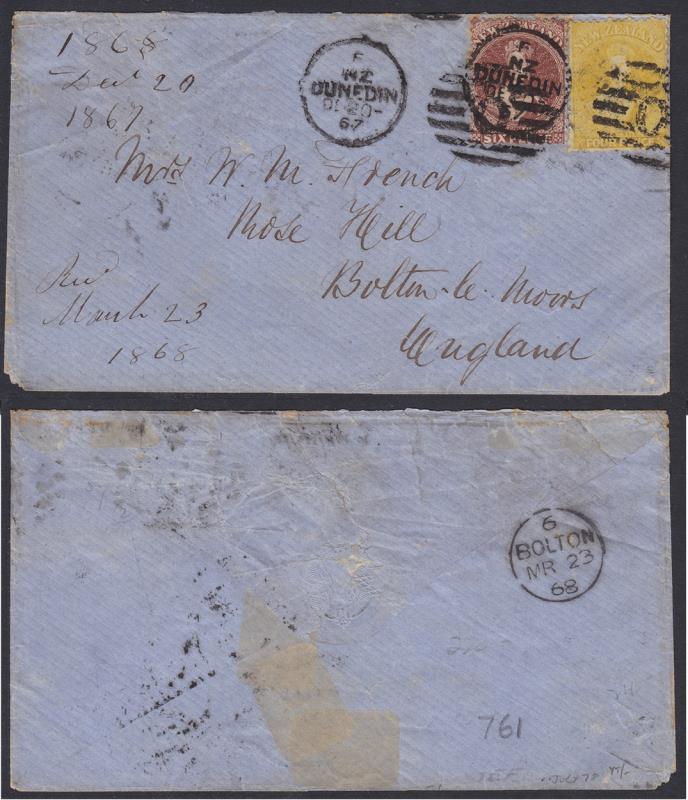 1868
Dec 20
1867
F
NZ
DUNEDIN
DE 20
67
NEW ZEALAND
F
NZ
DUNEDIN
DE 20
67
SIX PENCE
NEW ZEALAND
FOUR PENCE
Mrs W. M. French
Rose Hill
Bolton-le-Moors
England
Recd
March 23
1868
6
BOLTON
MR 23
68
761